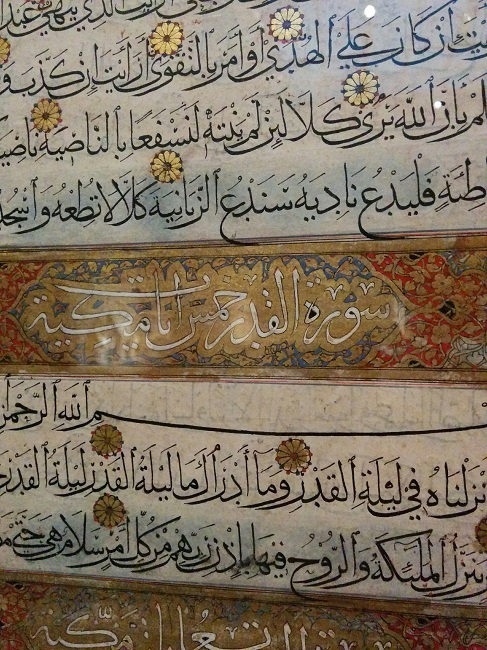 الذي ينهى عبدا
يت إن كان على الهدى أو أمر بالتقوى أرأيت إن كذب و
لم بأن الله يرى كلا لئن لم ينته لنسفعا بالناصية ناصية
اطئة فليدع ناديه سندع الزبانية كلا لا تطعه واسجد
سورة القدر خمس آيات مكية
م الله الرحمن
نزلناه في ليلة القدر وما أدرىك ما ليلة القدر ليلة القدر
تنزل الملئكة والروح فيها بإذن ربهم من كل أمر سلام هي حتى م
مكية